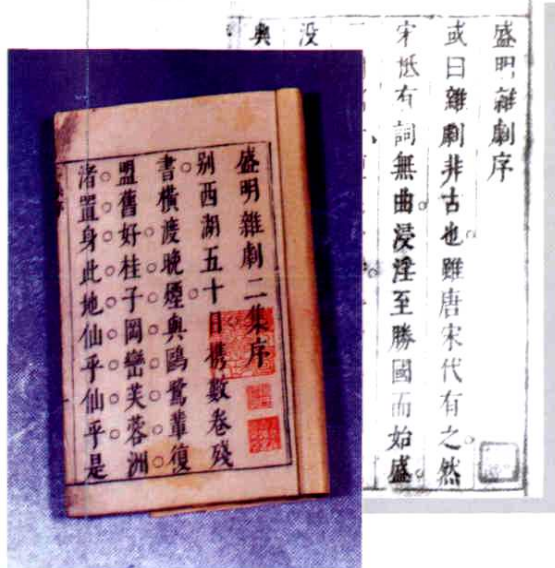 盛明雜劇序
或曰雜劇非古也。雖唐宋代有之。然
有詞無曲。浸淫至勝國而始盛。
没
與
盛明雜劇二集序
别西湖五十日携數卷殘
書橫渡晚煙與鷗鷺輩復
盟舊好桂子岡巒芙蓉洲
渚置身此地仙乎仙乎是